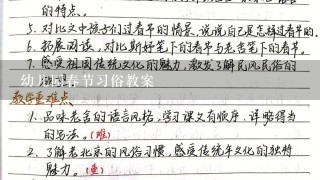 的特点。
5. 对比文中孩子们过春节的情景,说说自己是怎样过春节的。
6. 拓展阅读,对比斯妤笔下的春节与老舍笔下的春节。
7. 感受祖国传统文化的魅力,激发了解民风民俗的
幼儿园春节习俗教案
教学重难点、
1. 品味老舍的语言风格,学习课文有顺序、详略得当
的写法。(难)
2. 了解老北京的风俗习惯,感受传统年文化的独特
魅力。(重)